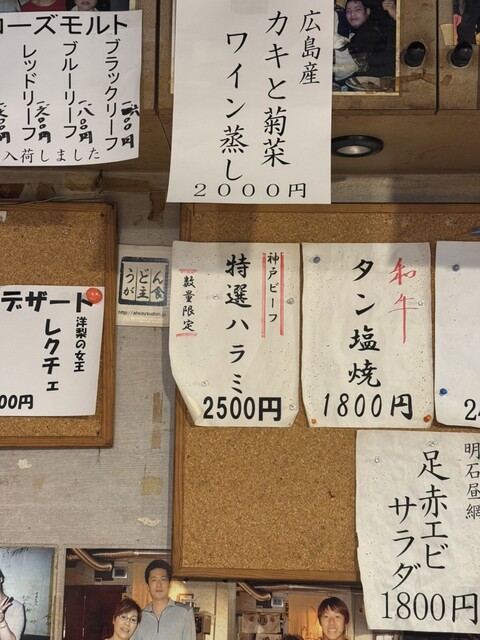 ローズモルト
ブラックリーフ
ブルーリーフ
一八〇〇円
レッドリーフ
入荷しました
広島産
カキと菊菜
ワイン蒸し
2000円
デザート
洋梨の女王
レクチェ
00円
うどん主食
神戸ビーフ
特選ハラミ
数量限定
2500円
和牛
タン塩焼
1800円
2
明石昼網
足赤エビ
サラダ
1800円